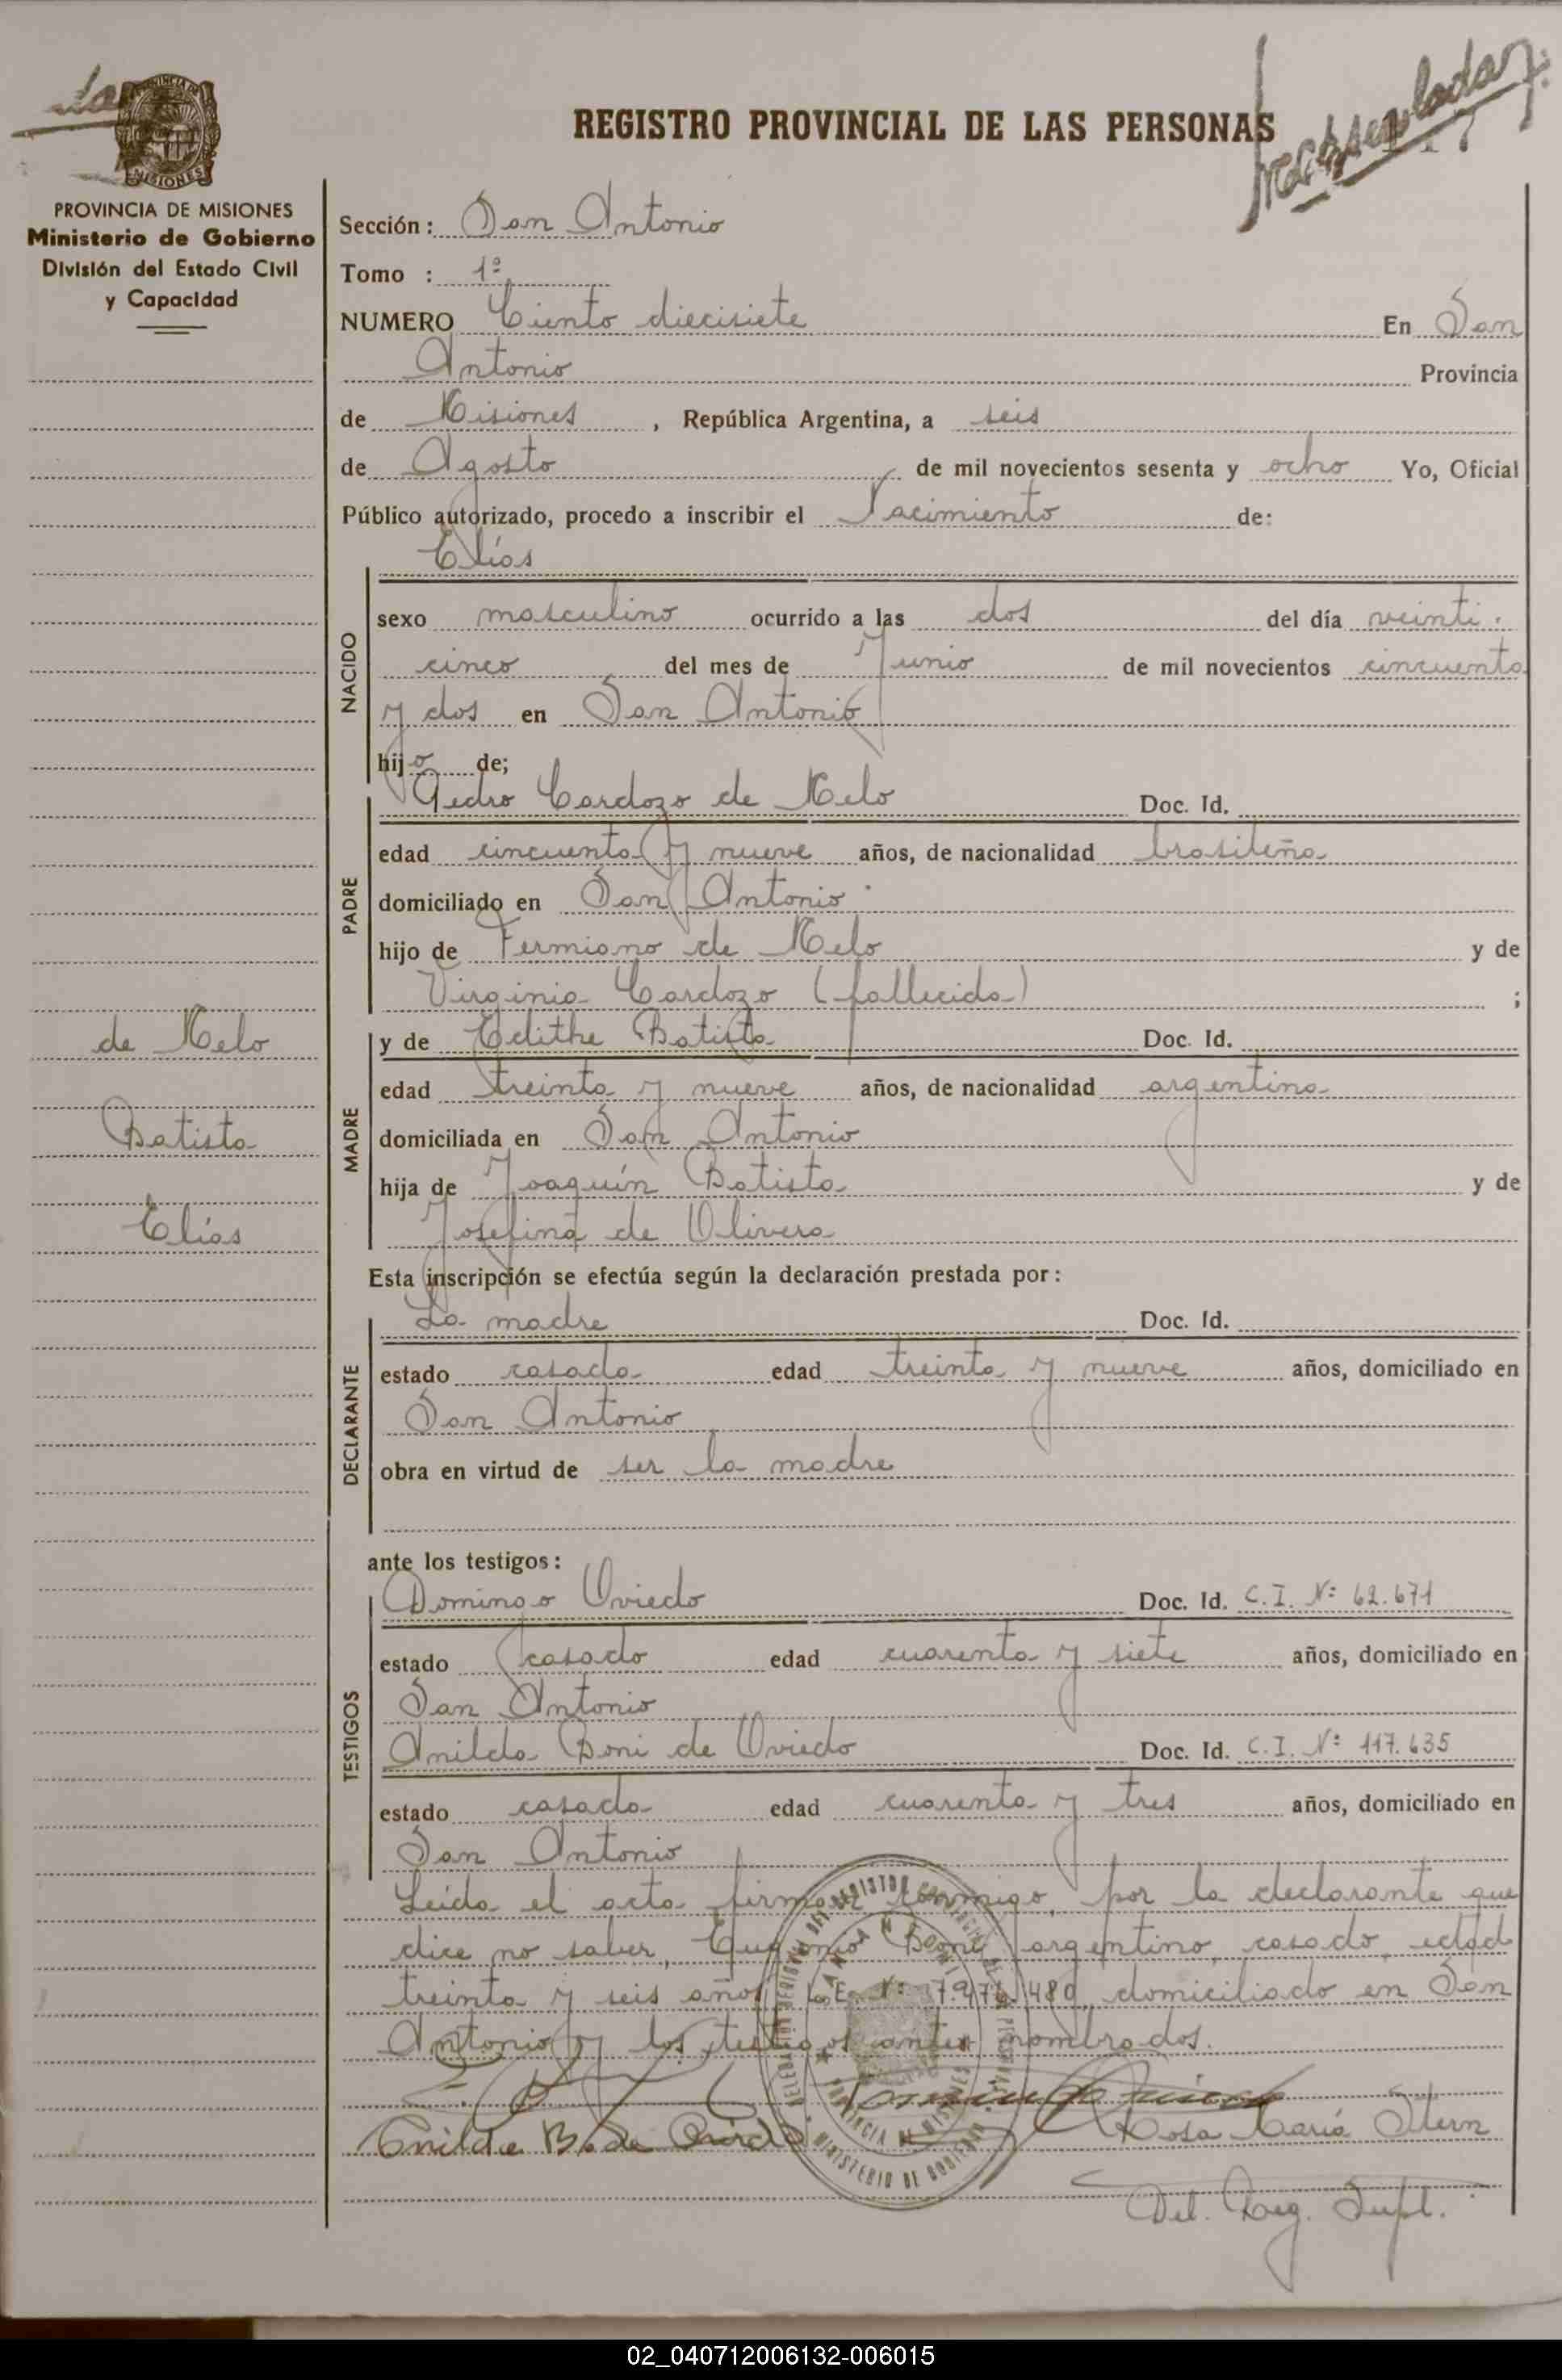 REGISTRO PROVINCIAL DE LAS PERSONAS
117
PROVINCIA DE MISIONES
Ministerio de Gobierno
División del Estado Civil
y Capacidad
Sección: San Antonio
Tomo : 1º
NUMERO Ciento diecisiete En San
Antonio Provincia
de Misiones, República Argentina, a seis
de Agosto de mil novecientos sesenta y ocho Yo, Oficial
Público autorizado, procedo a inscribir el Nacimiento de:
Elías
NACIDO
sexo masculino ocurrido a las dos del día veinti
cinco del mes de Junio de mil novecientos cincuenta
y dos en San Antonio
hijo de;
PADRE
Pedro Cardozo de Melo Doc. Id.
edad cincuenta y nueve años, de nacionalidad brasileña
domiciliado en San Antonio
hijo de Fermiano de Melo y de
Virginia Cardozo (fallecida) ;
MADRE
y de Edithe Batista Doc. Id.
edad treinta y nueve años, de nacionalidad argentina
domiciliada en San Antonio
hija de Joaquín Batista y de
Josefina de Olivera
de Melo
Batista
Elías
Esta inscripción se efectúa según la declaración prestada por:
DECLARANTE
La madre Doc. Id.
estado casada edad treinta y nueve años, domiciliado en
San Antonio
obra en virtud de ser la madre
ante los testigos:
TESTIGOS
Domingo Oviedo Doc. Id. C.I. Nº 62.671
estado casado edad cuarenta y siete años, domiciliado en
San Antonio
Anilda Boni de Oviedo Doc. Id. C.I. Nº 117.635
estado casada edad cuarenta y tres años, domiciliado en
San Antonio
Leída el acta firman conmigo, por la declarante que
dice no saber, Eugenio Boni, argentino, casado, edad
treinta y seis años, L.E. Nº 7.474.480, domiciliado en San
Antonio y los testigos antes nombrados.
Anilda B. de Oviedo
Rosa María Stern
Del. Reg. Supl.
02_040712006132-006015